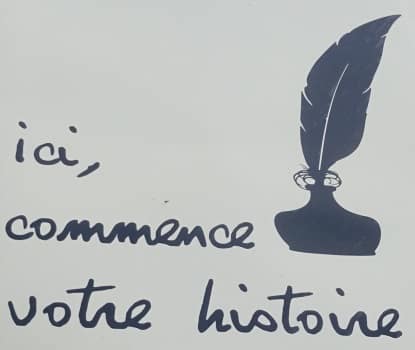 ici,
commence
votre histoire